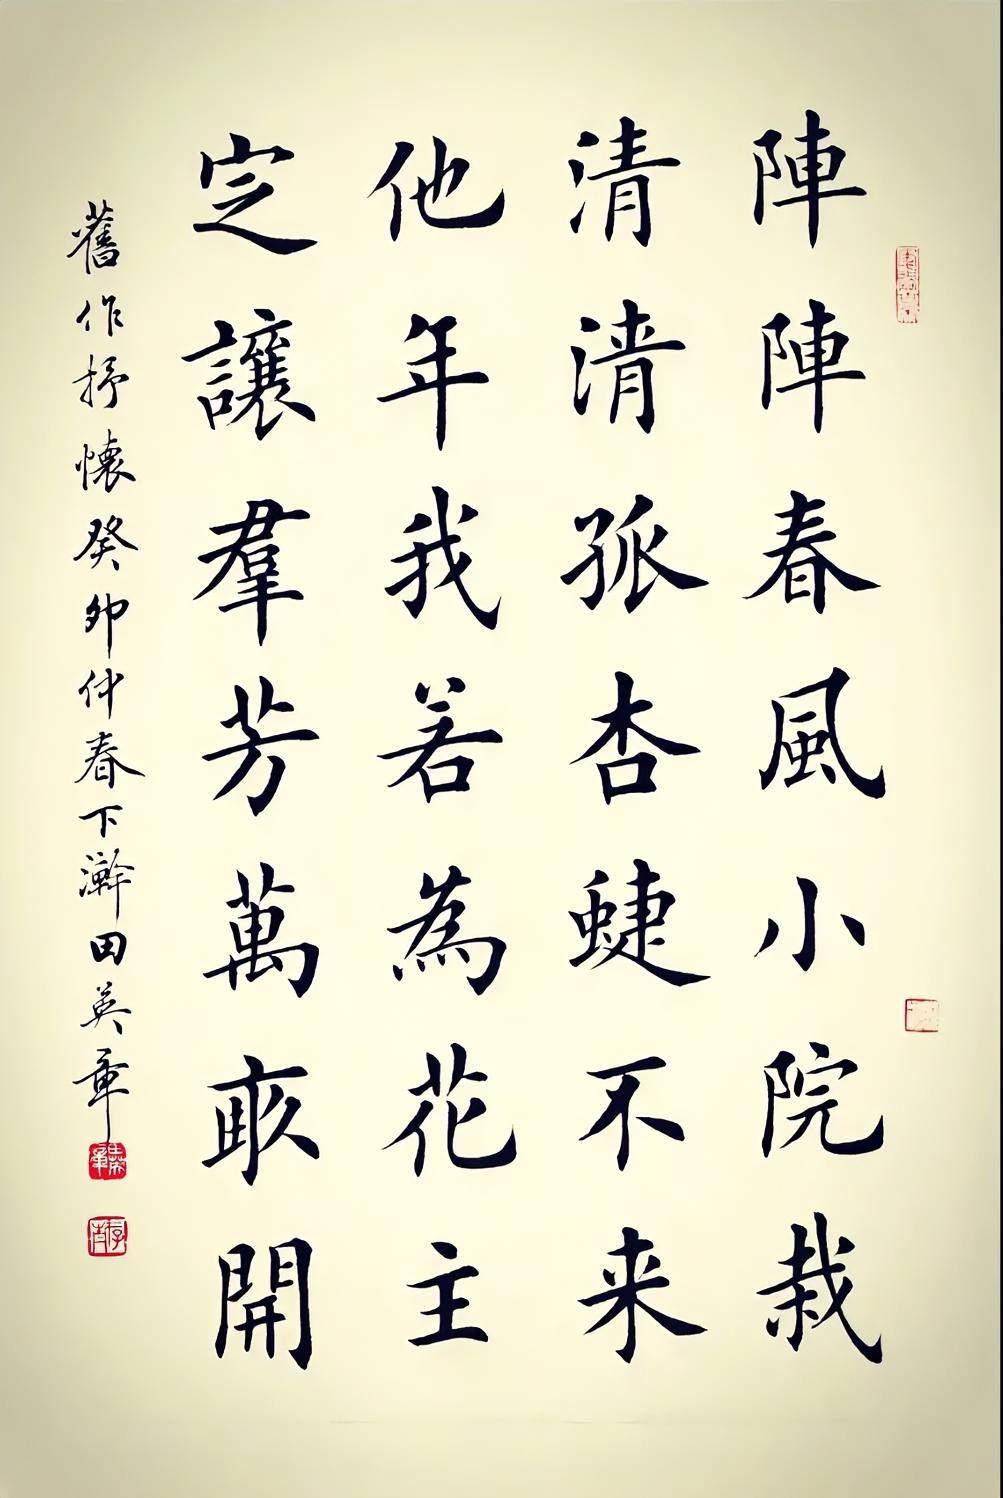 陣陣春風小院栽
清清孤杏蜨不来
他年我若為花主
定讓羣芳萬畝開
舊作抒懷癸卯仲春下澣田英章